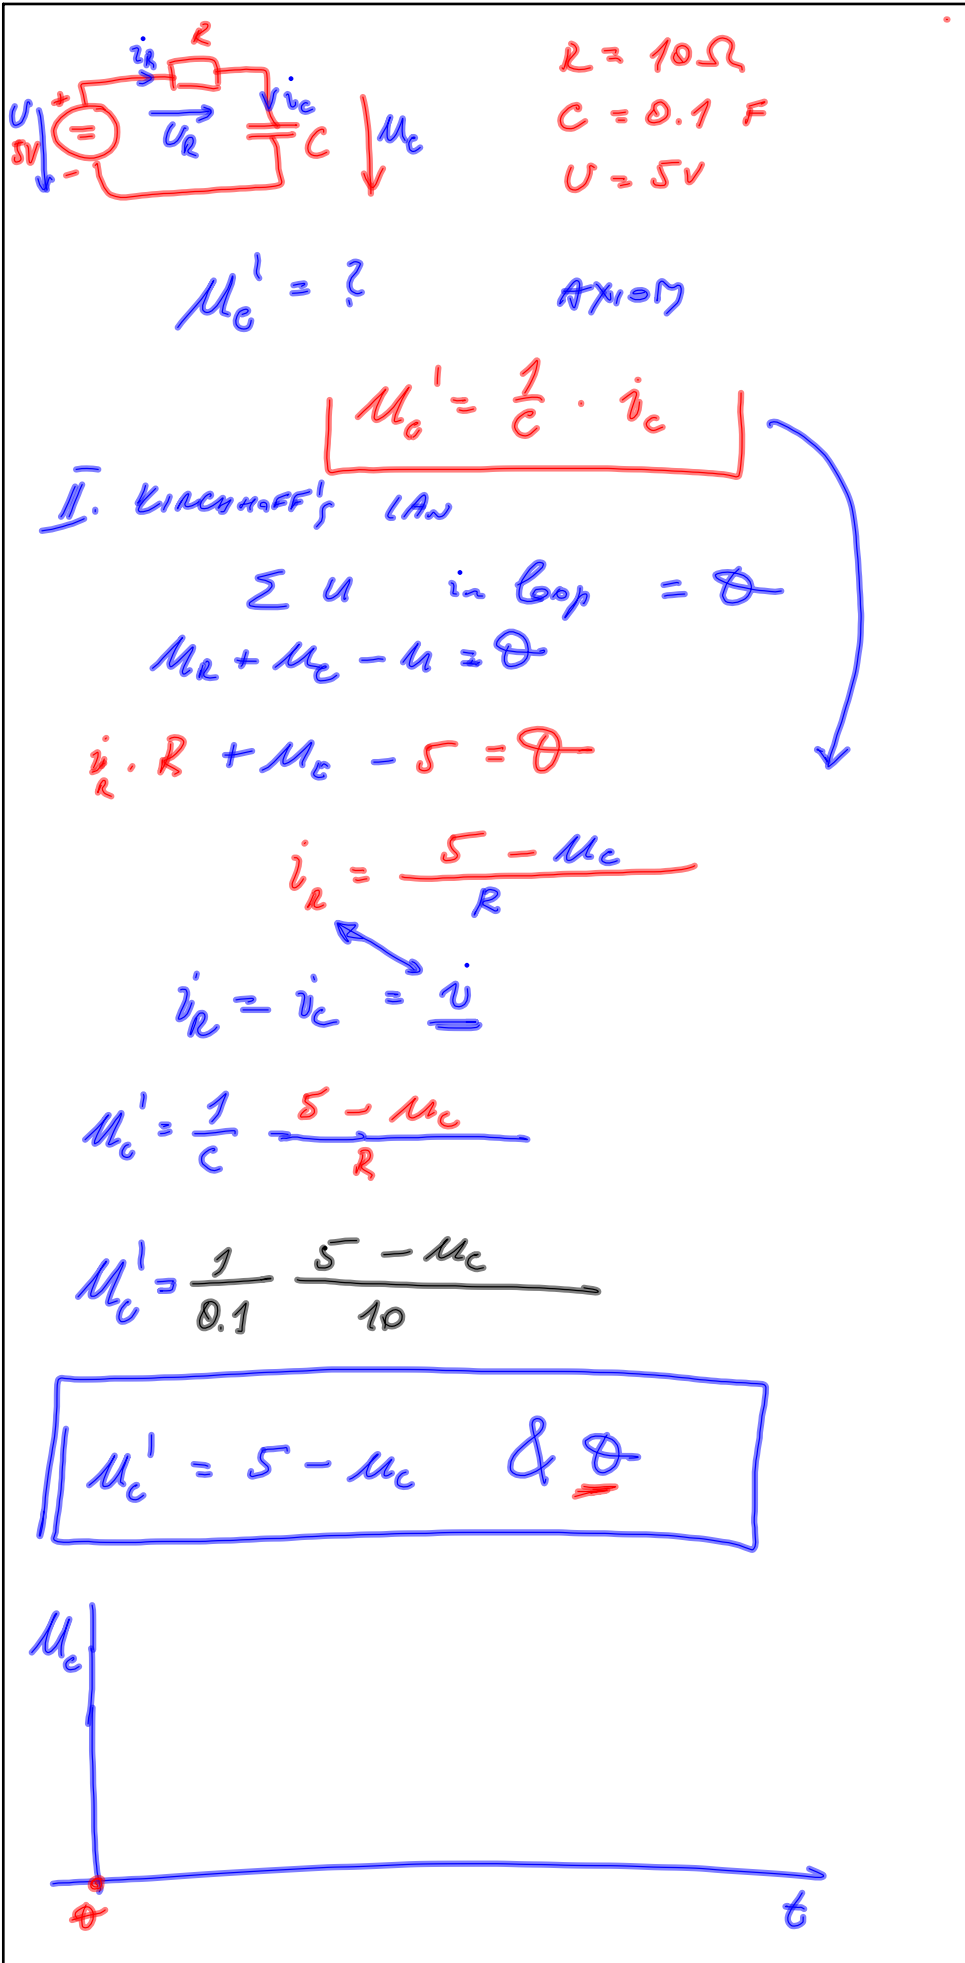 R
i_R
U
5V
+
=
-
U_R
i_C
C
u_C
R = 10 Ω
C = 0.1 F
U = 5V
u_C' = ?
AXIOM
u_C' = 1/C · i_C
II. KIRCHHOFF'S LAW
Σ u in loop = 0
u_R + u_C - u = 0
i_R · R + u_C - 5 = 0
i_R = (5 - u_C) / R
i_R = i_C = i
u_C' = 1/C (5 - u_C) / R
u_C' = 1/0.1 (5 - u_C) / 10
u_C' = 5 - u_C & 0
u_C
0
t